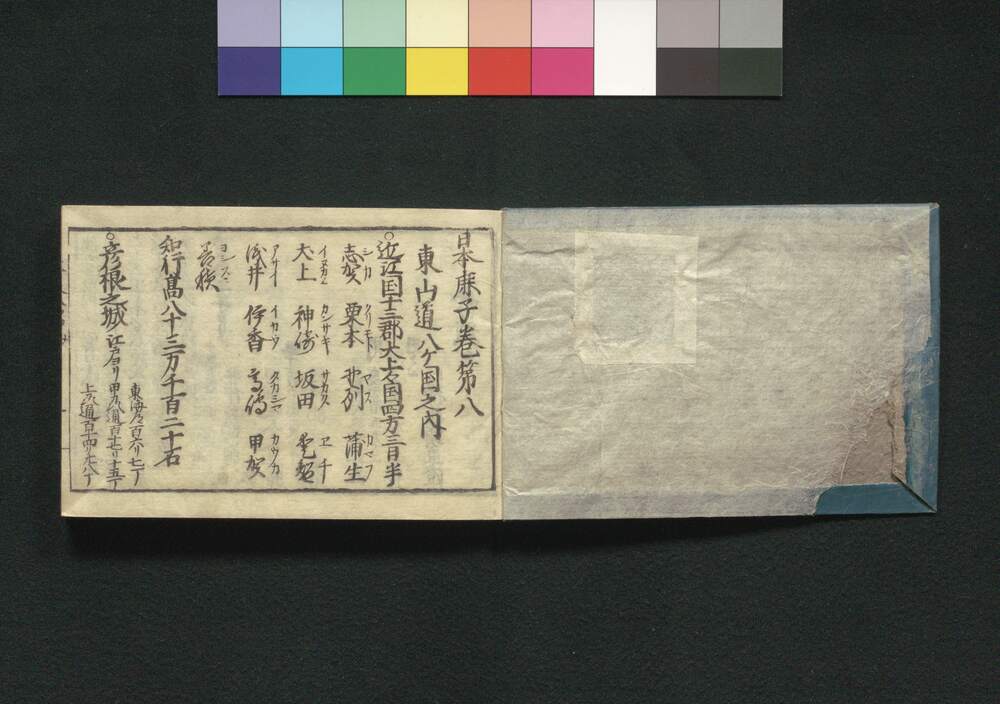 日本鹿子巻第八
東山道八ケ国之内
○近江国十三郡大上々国四方三日半
志賀 シカ 栗本 クリモト 野列 ヤス 蒲生 カマフ
犬上 イヌカミ 神崎 カンサキ 坂田 サカタ 愛智 ヱチ
浅井 アサイ 伊香 イカコ 高嶋 タカシマ 甲賀 カウカ
善積 ヨシスミ
知行高八十三万千百二十石
○彦根之城 江戸ヨリ
東海道百六リ七丁
甲州道百廿リ十五丁
上州道百十四リ廿八丁